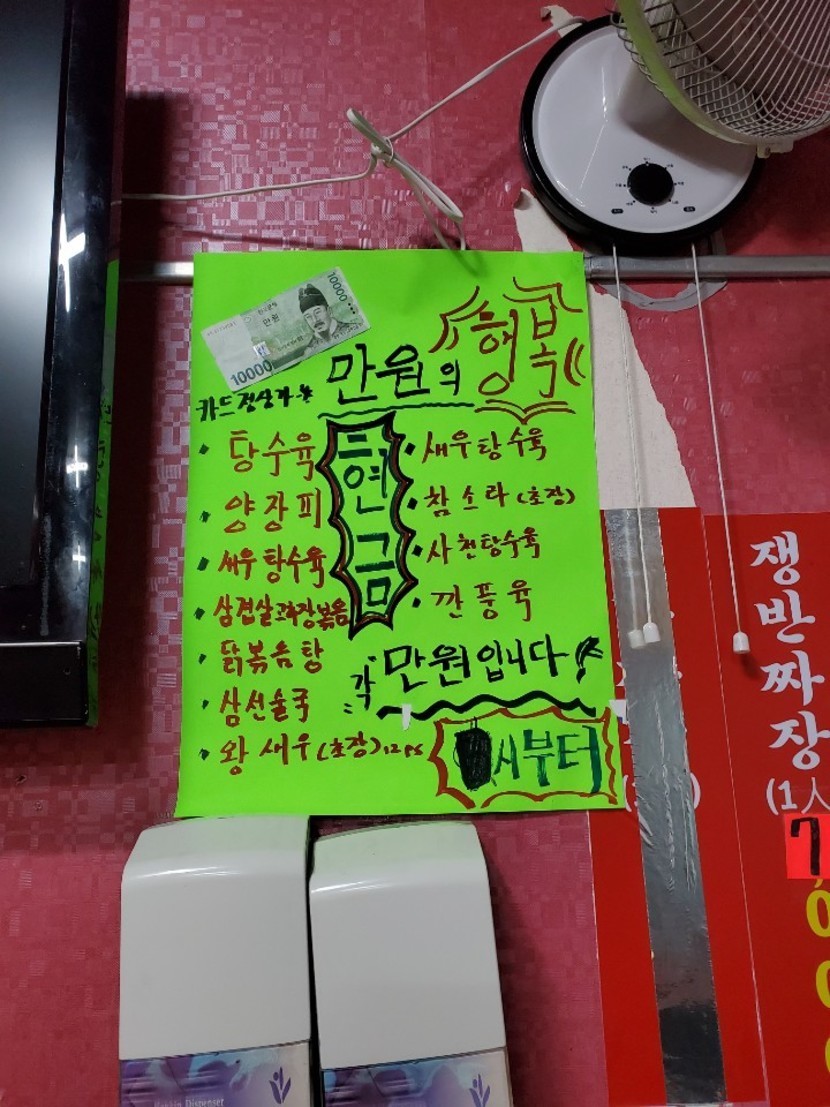 10000
만원
10000
만원의 행복
카드정상가능
현금
· 탕수육
· 양장피
· 새우탕수육
· 삼겹살고추장볶음
· 닭볶음탕
· 삼선술국
· 왕새우(초장)12PS
· 새우탕수육
· 참소라(초장)
· 사천탕수육
· 깐풍육
"각" 만원입니다!
시부터
쟁반짜장
(1人
7
Napkin Dispenser